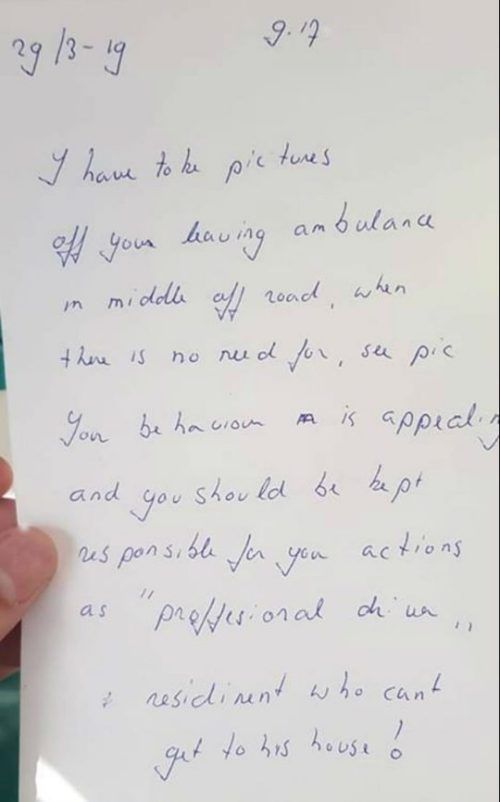 29/3-19 9.17
I have take pictures
off your leaving ambulance
in middle off road, when
there is no need for, see pic
Your behaviour is appealin
and you should be kept
responsible for you actions
as "proffesional driver,,
residinent who cant
get to his house!